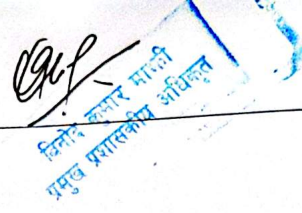 विनोद कुमार माझी
प्रमुख प्रशासकीय अधिकृत